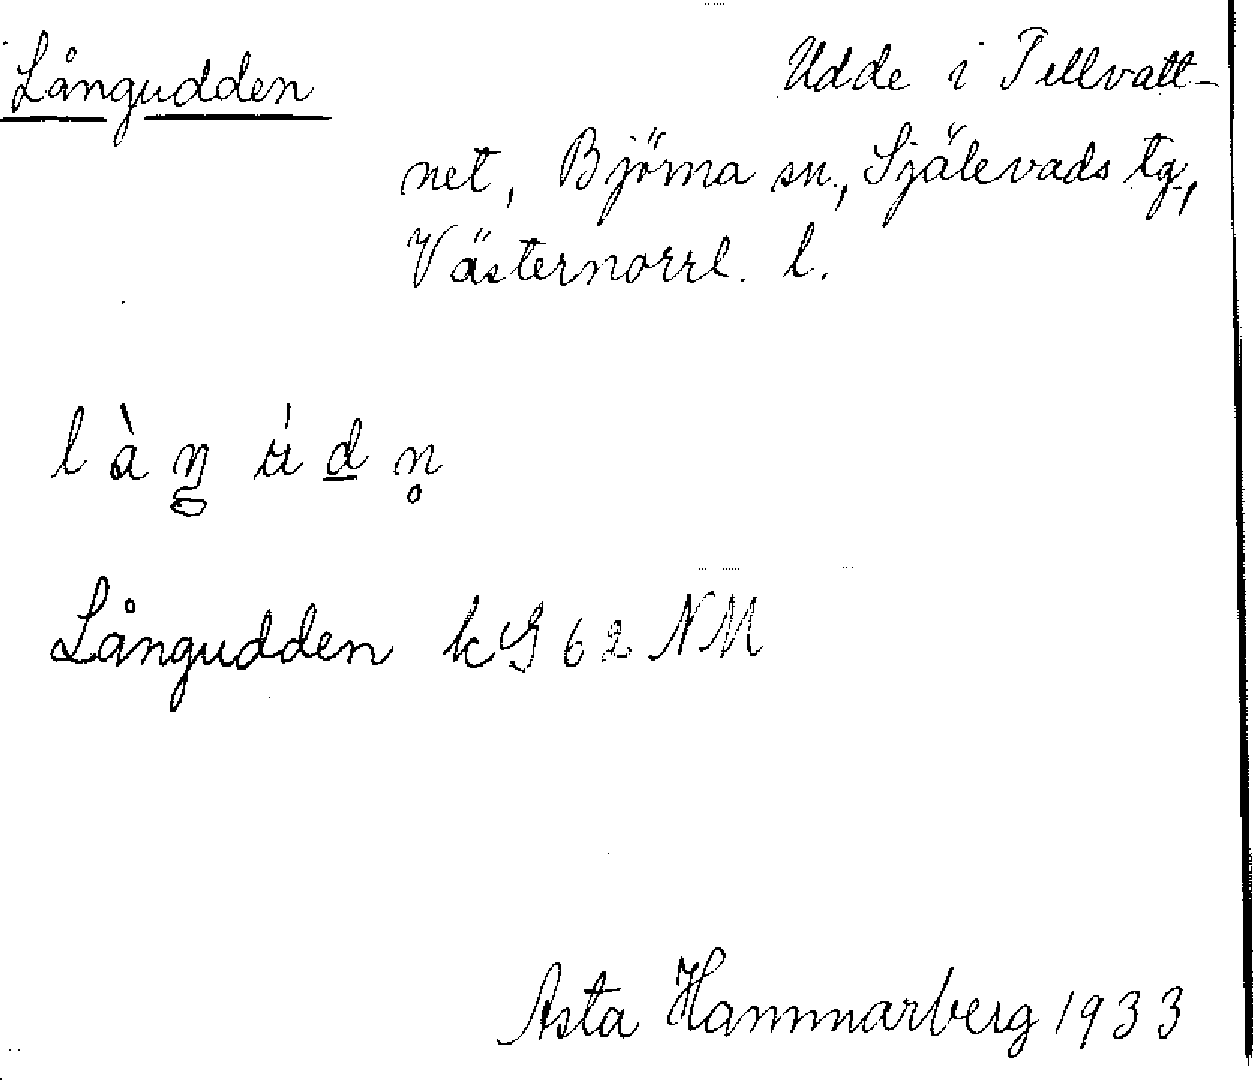 Långudden
Udde i Tellvatt-
net, Björna sn., Själevads tg,
Västernorrl. l.
l à ŋ ú d n̥
Långudden kG 62 NM
Asta Hammarberg 1933